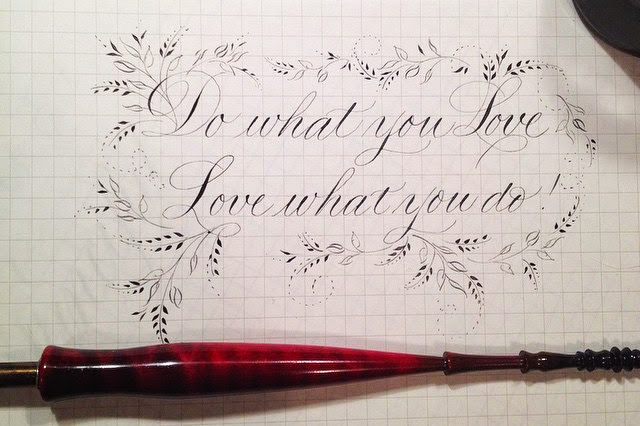 Do what you Love
Love what you do!